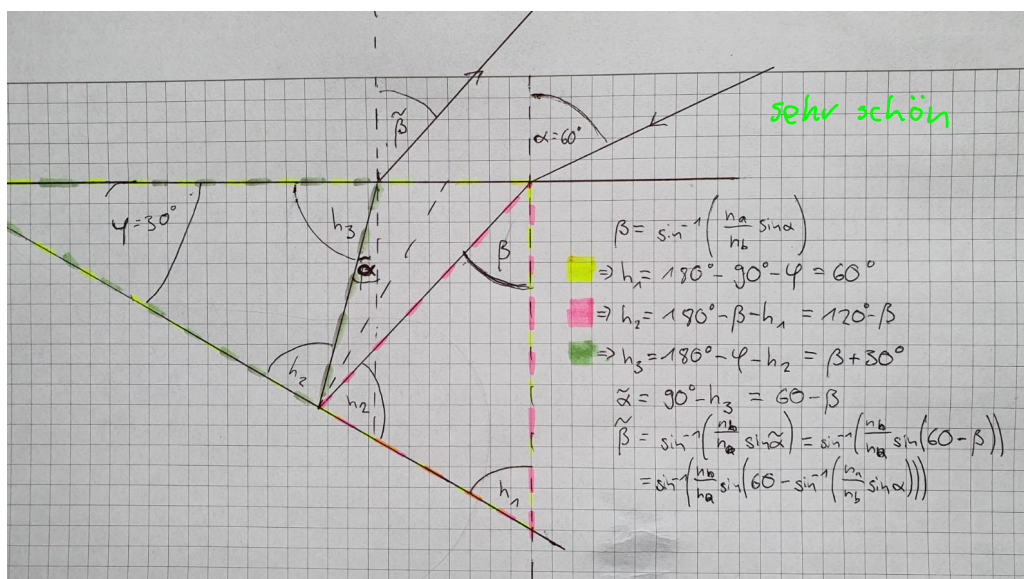 sehr schön
β̃
α=60°
φ=30°
h₃
α̃
β
h₂
h₂
h₁
β = sin⁻¹(nₐ/n_b sinα)
⇒ h₁ = 180° - 90° - φ = 60°
⇒ h₂ = 180° - β - h₁ = 120° - β
⇒ h₃ = 180° - φ - h₂ = β + 30°
α̃ = 90° - h₃ = 60 - β
β̃ = sin⁻¹(n_b/nₐ sinα̃) = sin⁻¹(n_b/nₐ sin(60 - β))
= sin⁻¹(n_b/nₐ sin(60 - sin⁻¹(n₁/n_b sinα)))